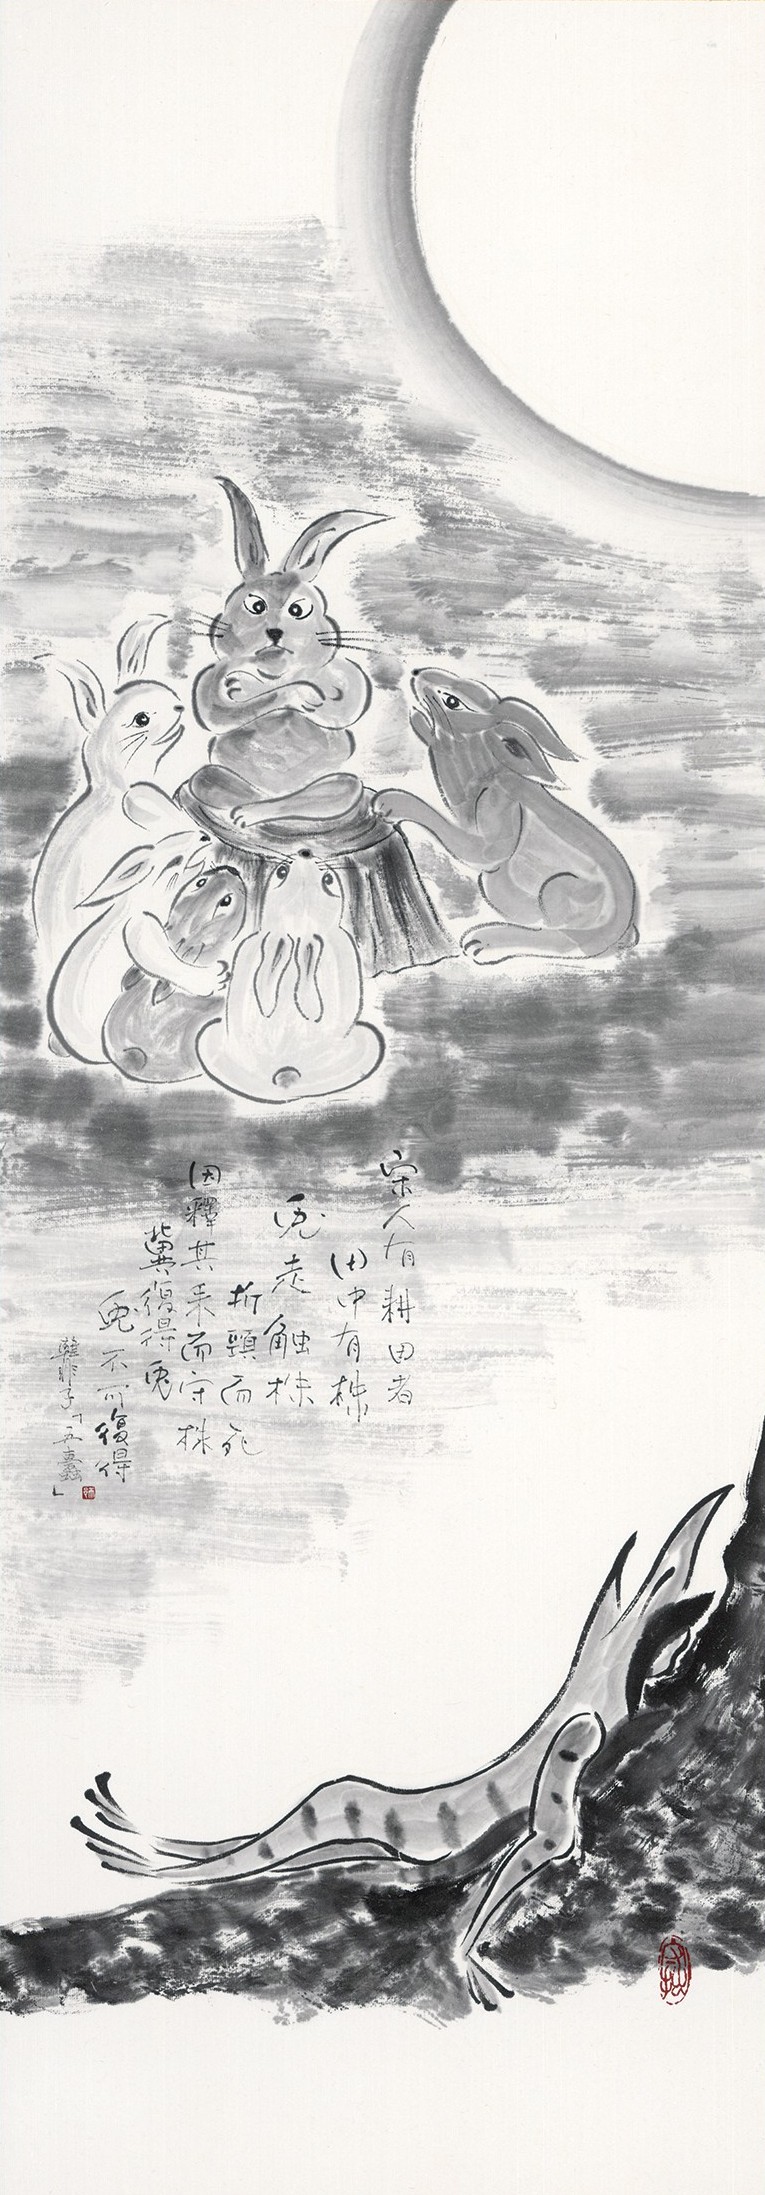 宋人有耕田者
田中有株
兎走触株
折頸而死
因釋其耒而守株
冀復得兎
兎不可復得
韓非子「五蠹」